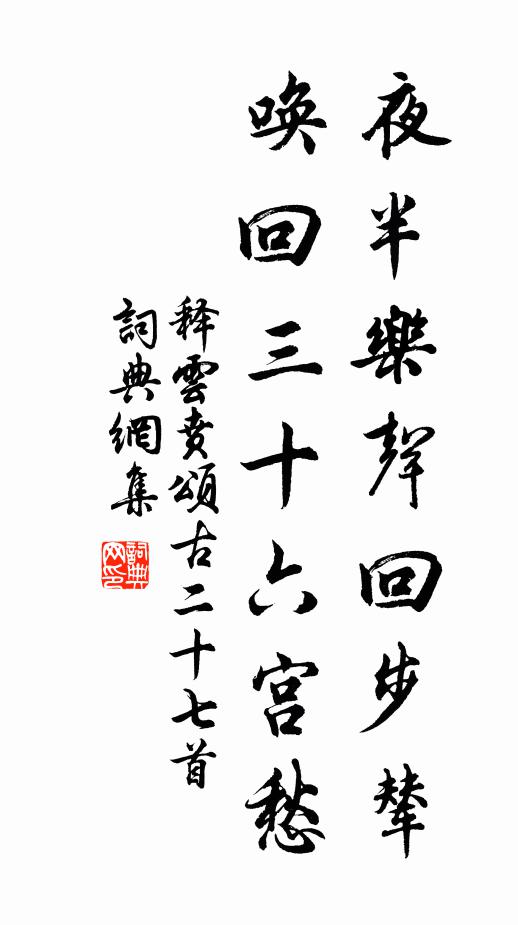 夜半樂聲回步輦
喚回三十六宮愁
释雲賁頌古二十七首
詞典網集
詞典网印